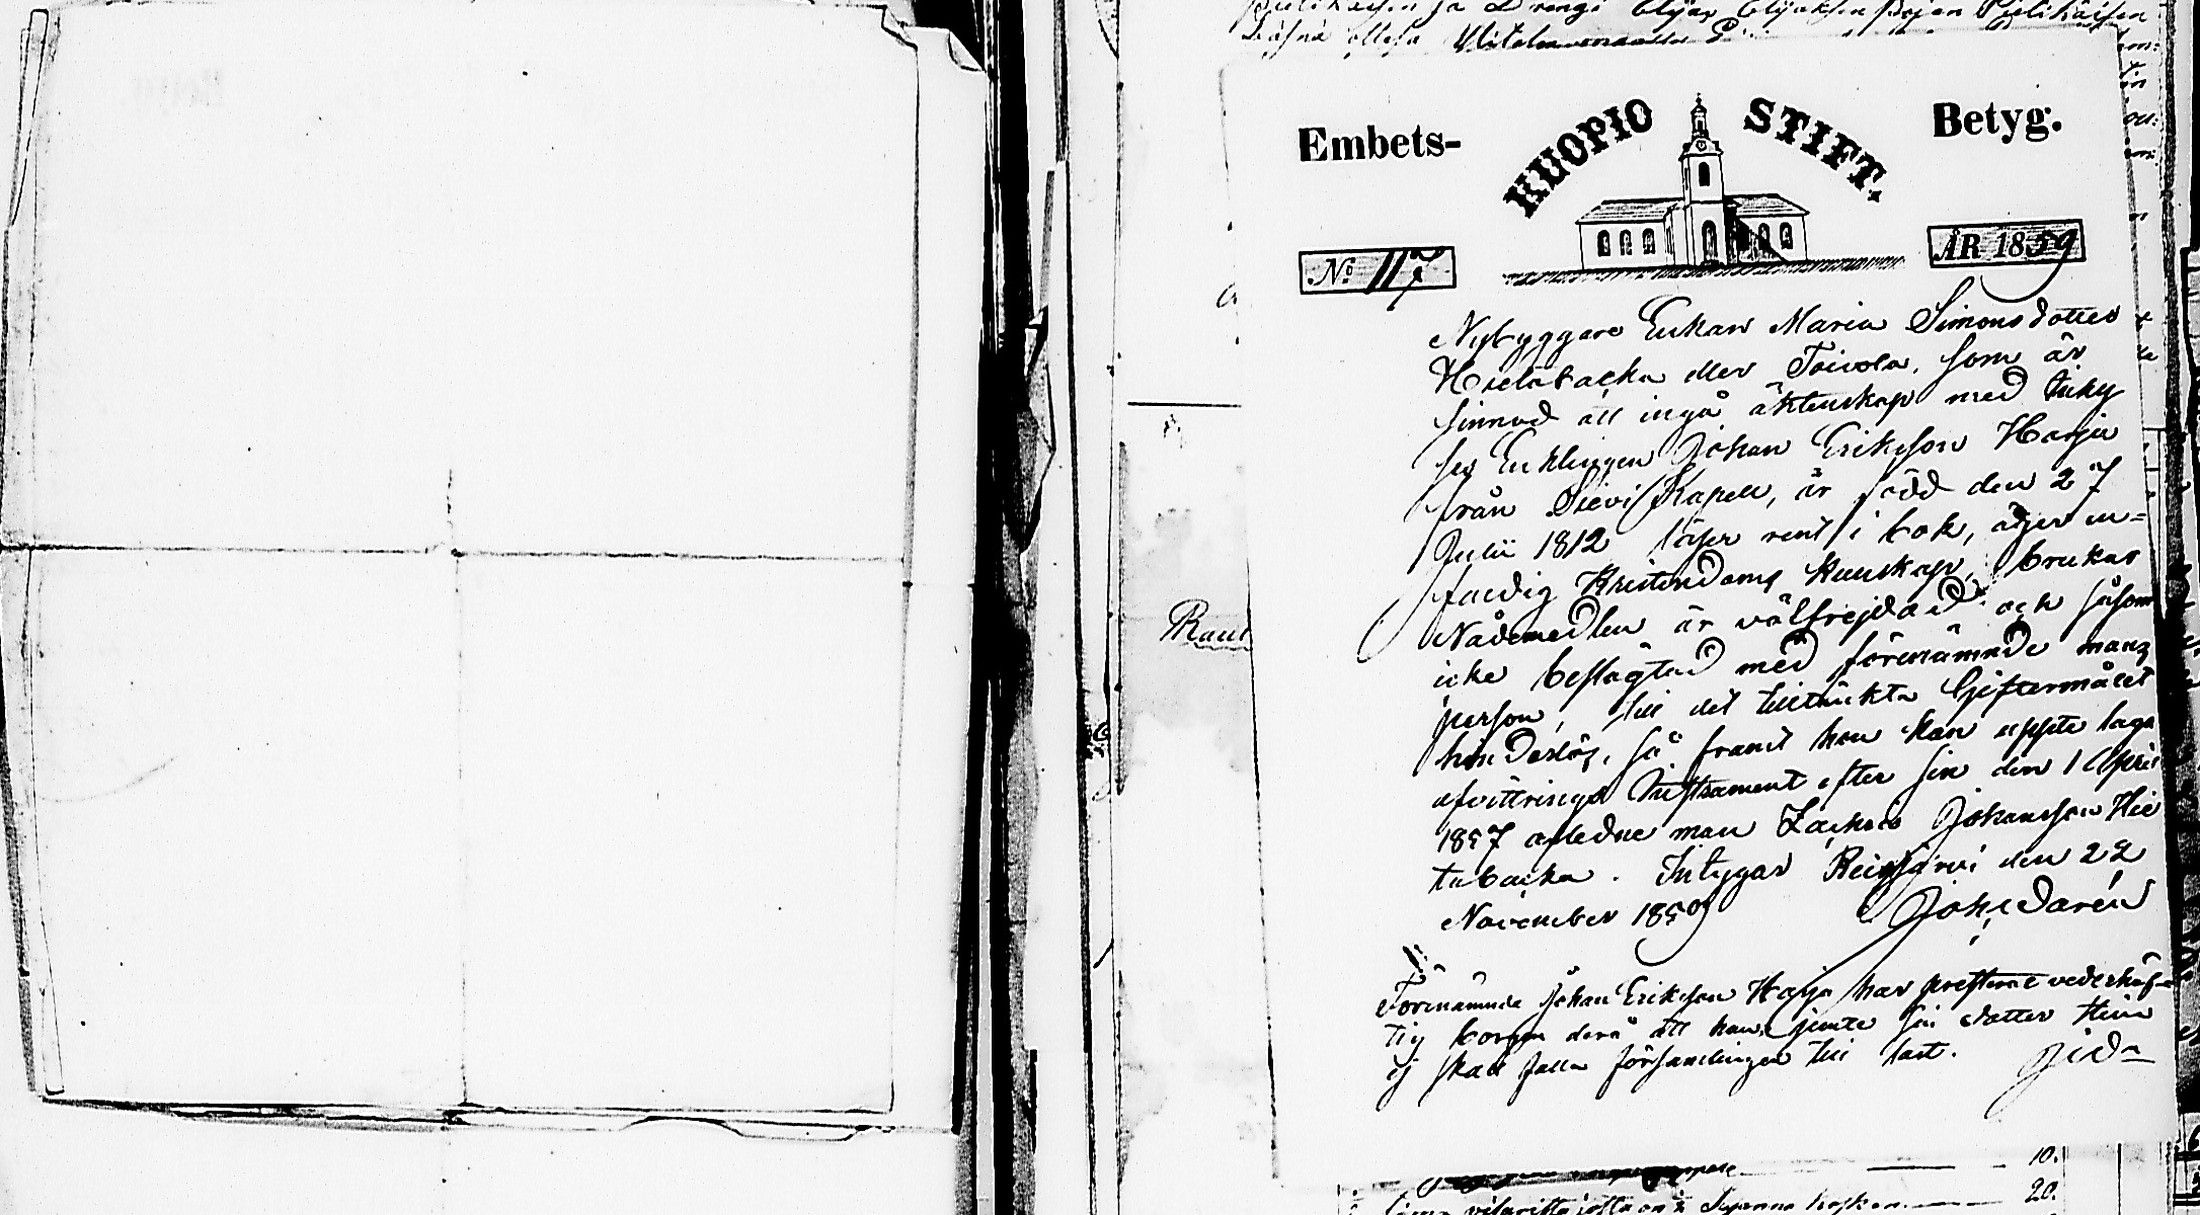 Embets- KUOPIO STIFT. Betyg.
No 117 ÅR 1859
Nybyggare Enkan Maria Simonsdotter
Hietabacka eller Toivola, som är
sinnad att ingå äktenskap med
Enklingen Johan Eriksson Harju
från Sievi Kapell, är född den 27
Julii 1812 läser rent i bok, äger en-
faldig Kristendoms kunskap, brukar
Nådemedlen är välfrejdad och såsom
icke beslägtad med förenämnde mans
person, till det tilltänkta Giftermålet
hinderslös, så framt hon kan uppte laga
afvittrings Instrument efter sin den 1 April
1857 aflidne man Zachris Johansson Hie
tabacka. Intygar Reisjärvi den 22
November 1859 Joh. Darén
Förenämnde Johan Eriksson Harju har presterat vederhäf-
tig borgen derå att han jemte sin dotter
ej skall falla församlingen till last.
Raut
10.
20.